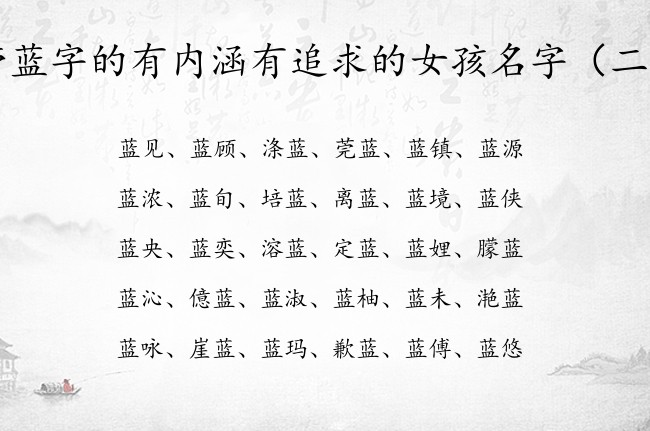 蓝字的有内涵有追求的女孩名字（二
蓝见、蓝顾、涤蓝、莞蓝、蓝镇、蓝源
蓝浓、蓝旬、培蓝、离蓝、蓝境、蓝侠
蓝央、蓝奕、溶蓝、定蓝、蓝娌、朦蓝
蓝沁、億蓝、蓝淑、蓝柚、蓝未、滟蓝
蓝咏、崖蓝、蓝玛、歉蓝、蓝傅、蓝悠